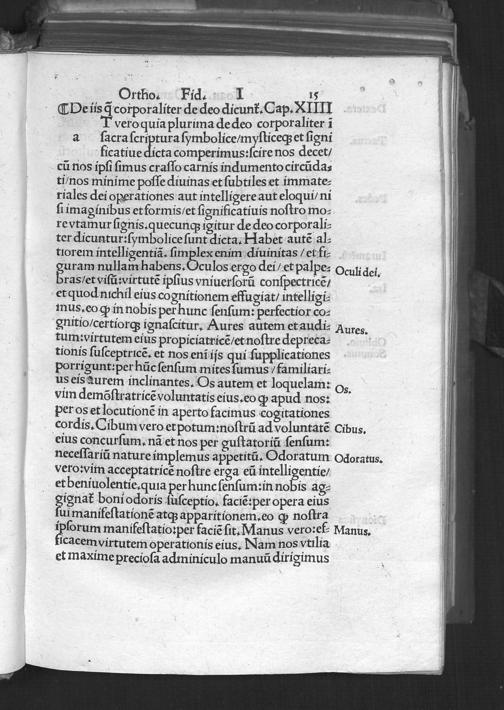 Ortho. Fid. I 15
¶De iis q̃ corporaliter de deo dicunt̃. Cap. XIIII
a T vero quia plurima de deo corporaliter ĩ
sacra scriptura symbolice/mysticeqꝫ et signi
ficatiue dicta comperimus: scire nos decet/
cũ nos ipsi simus crasso carnis indumento circũda⸗
ti/nos minime posse diuinas et subtiles et immate⸗
riales dei operationes aut intelligere aut eloqui/ni
si imaginibus et formis/et significatiuis nostro mo⸗
re vtamur signis. quecunqꝫ igitur de deo corporali⸗
ter dicuntur: symbolice sunt dicta. Habet autẽ al⸗
tiorem intelligentiã. simplex enim diuinitas/et fi⸗
guram nullam habens. Oculos ergo dei/et palpe⸗
Oculi dei.
bras/et visũ: virtutẽ ipsius vniuersorũ conspectricẽ/
et quod nichil eius cognitionem effugiat/intelligi⸗
mus. eo ꝙ in nobis per hunc sensum: perfectior co⸗
gnitio/certiorqꝫ ignascitur. Aures autem et audi⸗
Aures.
tum: virtutem eius propiciatricẽ/et nostre depreca⸗
tionis susceptricẽ. et nos eni ĩjs qui supplicationes
porrigunt: per hũc sensum mites sumus/familiari⸗
us eis aurem inclinantes. Os autem et loquelam:
Os.
vim demõstratricẽ voluntatis eius. eo ꝙ apud nos:
per os et locutionẽ in aperto facimus cogitationes
cordis. Cibum vero et potum: nostrũ ad voluntatẽ
Cibus.
eius concursum. nã et nos per gustatoriũ sensum:
necessariũ nature implemus appetitũ. Odoratum
Odoratus.
vero: vim acceptatricẽ nostre erga eũ intelligentie/
et beniuolentie. quia per hunc sensum: in nobis ag⸗
gignat̃ boni odoris susceptio. faciẽ: per opera eius
sui manifestationẽ atqꝫ apparitionem. eo ꝙ nostra
ipsorum manifestatio: per faciẽ fit. Manus vero: ef⸗
Manus.
ficacem virtutem operationis eius. Nam nos vtilia
et maxime preciosa adminiculo manuũ dirigimus